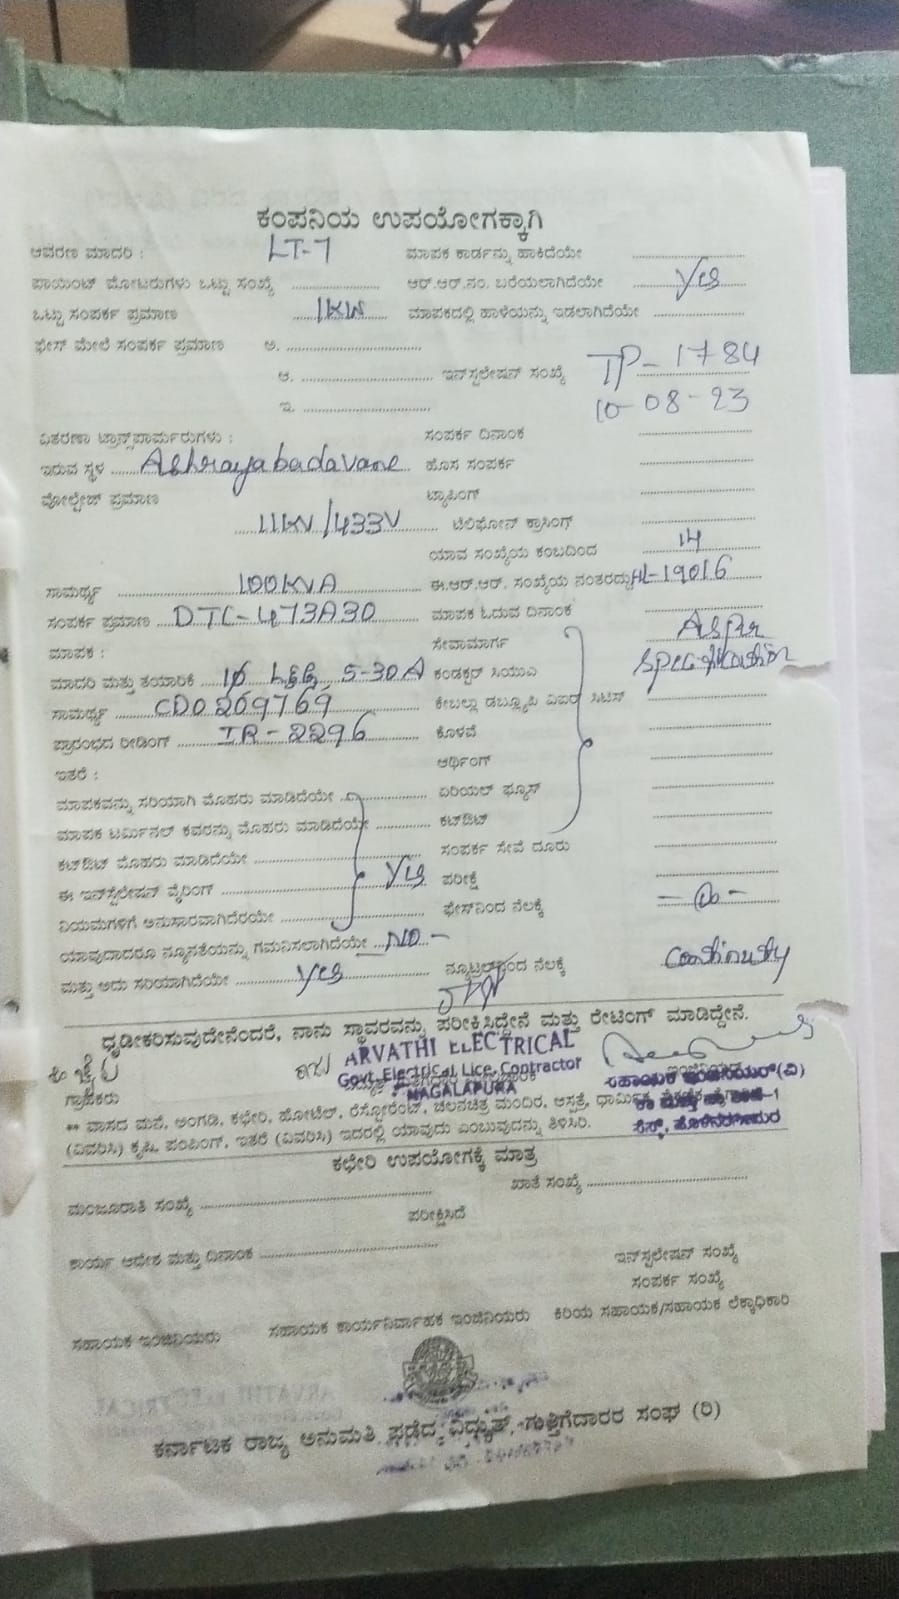 ಕಂಪನಿಯ ಉಪಯೋಗಕ್ಕಾಗಿ
ಆವರಣ ಮಾದರಿ : LT-7 ಮಾಪಕ ಕಾರ್ಡನ್ನು ಹಾಕಿದೆಯೇ
ಪಾಯಿಂಟ್ ಮೋಟರುಗಳು ಒಟ್ಟು ಸಂಖ್ಯೆ ಆರ್.ಆರ್.ನಂ. ಬರೆಯಲಾಗಿದೆಯೇ Yes
ಒಟ್ಟು ಸಂಪರ್ಕ ಪ್ರಮಾಣ 1KW ಮಾಪಕದಲ್ಲಿ ಹಾಳೆಯನ್ನು ಇಡಲಾಗಿದೆಯೇ
ಫೇಸ್ ಮೇಲೆ ಸಂಪರ್ಕ ಪ್ರಮಾಣ ಅ.
ಆ. ಇನ್‌ಸ್ಟಲೇಷನ್ ಸಂಖ್ಯೆ TP-1784
ಇ. 10-08-23
ವಿತರಣಾ ಟ್ರಾನ್ಸ್‌ಪಾರ್ಮರುಗಳು : ಸಂಪರ್ಕ ದಿನಾಂಕ
ಇರುವ ಸ್ಥಳ Ashrayabadavane ಹೊಸ ಸಂಪರ್ಕ
ವೋಲ್ಟೇಜ್ ಪ್ರಮಾಣ ಟ್ಯಾಪಿಂಗ್
11KV/433V ಟೆಲಿಫೋನ್ ಕ್ರಾಸಿಂಗ್
ಯಾವ ಸಂಖ್ಯೆಯ ಕಂಬದಿಂದ 14
ಸಾಮರ್ಥ್ಯ 100KVA ಈ.ಆರ್.ಆರ್. ಸಂಖ್ಯೆಯ ನಂತರದ್ದು HL-19016
ಸಂಪರ್ಕ ಪ್ರಮಾಣ DTC-473A30 ಮಾಪಕ ಓದುವ ದಿನಾಂಕ
ಮಾಪಕ : ಸೇವಾಮಾರ್ಗ As per
ಮಾದರಿ ಮತ್ತು ತಯಾರಿಕೆ 1φ L&G, 5-30A ಕಂಡಕ್ಟರ್ ಸಿಯುಎ specification
ಸಾಮರ್ಥ್ಯ CD0269769, ಕೇಬಲ್ಲು ಡಬ್ಲ್ಯೂಪಿ ವಿಐಆರ್ ಸಿಟಿಎಸ್
ಪ್ರಾರಂಭದ ರೀಡಿಂಗ್ IR-2296 ಕೊಳವೆ
ಇತರೆ : ಅರ್ಥಿಂಗ್
ಮಾಪಕವನ್ನು ಸರಿಯಾಗಿ ಮೊಹರು ಮಾಡಿದೆಯೇ ಏರಿಯಲ್ ಫ್ಯೂಸ್
ಮಾಪಕ ಟರ್ಮಿನಲ್ ಕವರನ್ನು ಮೊಹರು ಮಾಡಿದೆಯೇ ಕಟ್‌ಔಟ್
ಕಟ್‌ಔಟ್ ಮೊಹರು ಮಾಡಿದೆಯೇ ಸಂಪರ್ಕ ಸೇವೆ ದೂರು
ಈ ಇನ್‌ಸ್ಟಲೇಷನ್ ವೈರಿಂಗ್ Yes ಪರೀಕ್ಷೆ
ನಿಯಮಗಳಿಗೆ ಅನುಸಾರವಾಗಿದೆರಯೇ ಫೇಸ್‌ನಿಂದ ನೆಲಕ್ಕೆ
ಯಾವುದಾದರೂ ನ್ಯೂನತೆಯನ್ನು ಗಮನಿಸಲಾಗಿದೆಯೇ NO
ಮತ್ತು ಅದು ಸರಿಯಾಗಿದೆಯೇ Yes ನ್ಯೂಟ್ರಲ್‌ನಿಂದ ನೆಲಕ್ಕೆ continuity
ಧೃಡೀಕರಿಸುವುದೇನೆಂದರೆ, ನಾನು ಸ್ಥಾವರವನ್ನು ಪರೀಕ್ಷಿಸಿದ್ದೇನೆ ಮತ್ತು ರೇಟಿಂಗ್ ಮಾಡಿದ್ದೇನೆ.
ARVATHI ELECTRICAL
Govt. Electrical Lice. Contractor
NAGALAPURA
ಗ್ರಾಹಕರು ಸಹಾಯಕ ಇಂಜಿನಿಯರ್(ವಿ)
** ವಾಸದ ಮನೆ, ಅಂಗಡಿ, ಕಛೇರಿ, ಹೋಟೆಲ್, ರೆಸ್ಟೋರೆಂಟ್, ಚಲನಚಿತ್ರ ಮಂದಿರ, ಆಸ್ಪತ್ರೆ, ಧಾರ್ಮಿಕ,
(ವಿವರಿಸಿ) ಕೃಷಿ, ಪಂಪಿಂಗ್, ಇತರೆ (ವಿವರಿಸಿ) ಇದರಲ್ಲಿ ಯಾವುದು ಎಂಬುವುದನ್ನು ತಿಳಿಸಿರಿ.
ಕಛೇರಿ ಉಪಯೋಗಕ್ಕೆ ಮಾತ್ರ
ಮಂಜೂರಾತಿ ಸಂಖ್ಯೆ ಖಾತೆ ಸಂಖ್ಯೆ
ಪರೀಕ್ಷಿಸಿದೆ
ಕಾರ್ಯ ಆದೇಶ ಮತ್ತು ದಿನಾಂಕ ಇನ್‌ಸ್ಟಲೇಷನ್ ಸಂಖ್ಯೆ
ಸಂಪರ್ಕ ಸಂಖ್ಯೆ
ಸಹಾಯಕ ಇಂಜಿನಿಯರು ಸಹಾಯಕ ಕಾರ್ಯನಿರ್ವಾಹಕ ಇಂಜಿನಿಯರು ಕಿರಿಯ ಸಹಾಯಕ/ಸಹಾಯಕ ಲೆಕ್ಕಾಧಿಕಾರಿ
ಕರ್ನಾಟಕ ರಾಜ್ಯ ಅನುಮತಿ ಪಡೆದ ವಿದ್ಯುತ್ ಗುತ್ತಿಗೆದಾರರ ಸಂಘ (ರಿ)